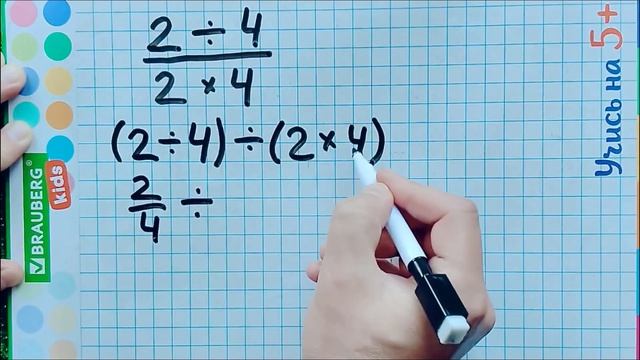 2 ÷ 4
2 × 4
(2 ÷ 4) ÷ (2 × 4)
2
4
÷
BRAUBERG
kids
Учись на 5+